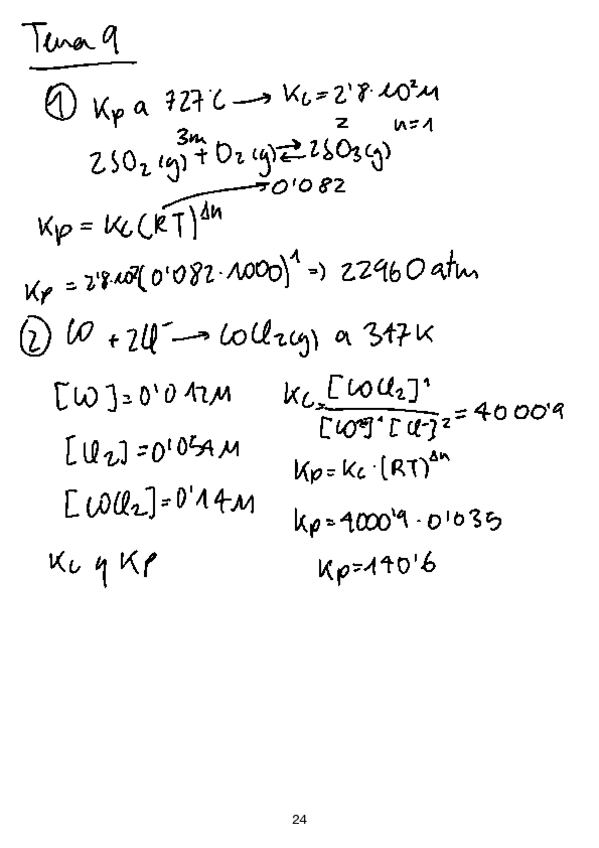 Tema 9
① Kp a 727°C → Kc = 2'8·10² M
3m 2 n=1
2SO₂(g) + O₂(g) ⇄ 2SO₃(g)
Kp = Kc(RT)^Δn → 0'082
Kp = 2'8·10²(0'082·1000)¹ => 22960 atm
② CO + 2Cl⁻ → COCl₂(g) a 347K
[CO] = 0'012M
[Cl₂] = 0'054M
[COCl₂] = 0'14M
Kc y Kp
Kc = [COCl₂]¹ / [CO]¹[Cl⁻]² = 4000'9
Kp = Kc·(RT)^Δn
Kp = 4000'9·0'035
Kp = 140'6
24